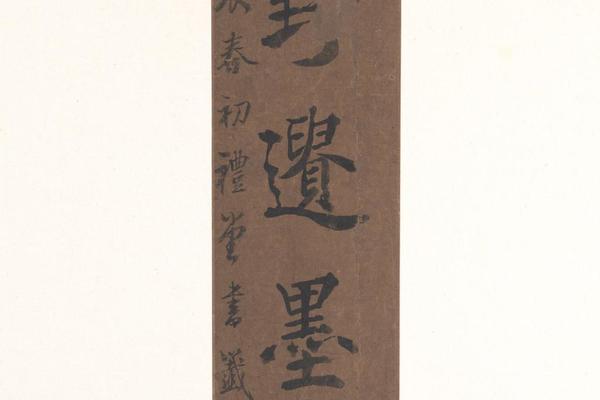 遺墨
春初禮堂書籤